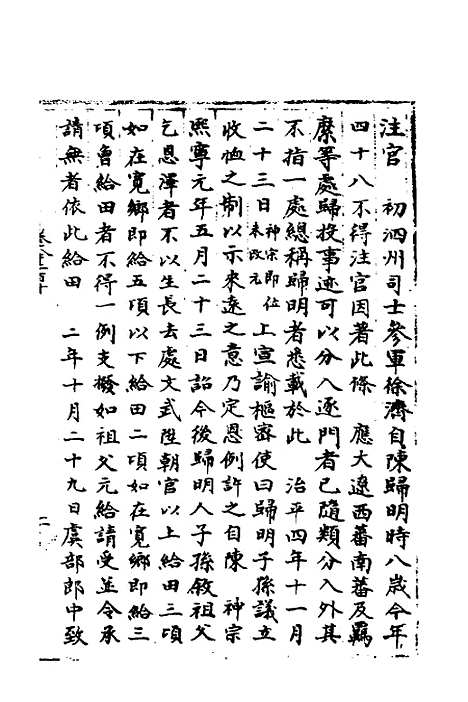 注官　初泗州司士參軍徐濟自陳歸明時八歲今年
四十八不得注官因著此條　應大遼西蕃南蕃及羈
縻等處歸投事迹可以分入逐門者已隨類分入外其
不指一處總稱歸明者悉載於此　治平四年十一月
二十三日神宗即位未改元上宣諭樞密使曰歸明子孫議立
收恤之制以示來遠之意乃定恩例許之自陳　神宗
熙寧元年五月二十三日詔今後歸明人子孫敘祖父
乞恩澤者不以生長去處文武陞朝官以上給田三頃
如在寬鄉即給五頃以下給田二頃如在寬鄉即給三
頃曾給田者不得一例支撥如祖父元給請受並令承
請無者依此給田　二年十月二十九日虞部郎中致